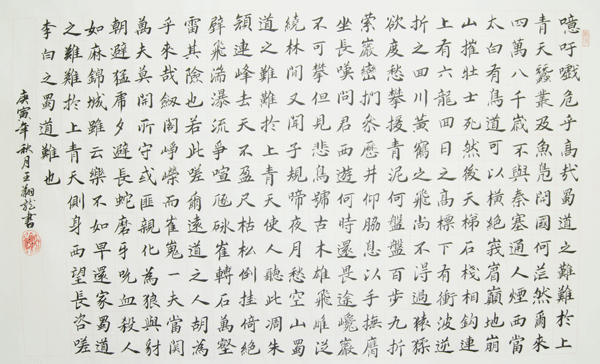 噫吁戲危乎高哉蜀道之難難於上
青天蠶叢及魚鳧開國何茫然爾來
四萬八千歲不與秦塞通人煙西當
太白有鳥道可以橫絕峨眉巔地崩
山摧壯士死然後天梯石棧相鈎連
上有六龍回日之高標下有衝波逆
折之回川黃鶴之飛尚不得過猿猱
欲度愁攀援青泥何盤盤百步九折
縈巖巒捫參歷井仰脇息以手撫膺
坐長嘆問君西遊何時還畏途巉巖
不可攀但見悲鳥號古木雄飛雌從
繞林間又聞子規啼夜月愁空山蜀
道之難難於上青天使人聽此凋朱
顏連峰去天不盈尺枯松倒挂倚絕
壁飛湍瀑流爭喧豗砯崖轉石萬壑
雷其險也若此嗟爾遠道之人胡為
乎來哉劍閣崢嶸而崔嵬一夫當關
萬夫莫開所守或匪親化為狼與豺
朝避猛虎夕避長蛇磨牙吮血殺人
如麻錦城雖云樂不如早還家蜀道
之難難於上青天側身西望長咨嗟
李白之蜀道難也
庚寅年秋月王翔龍書